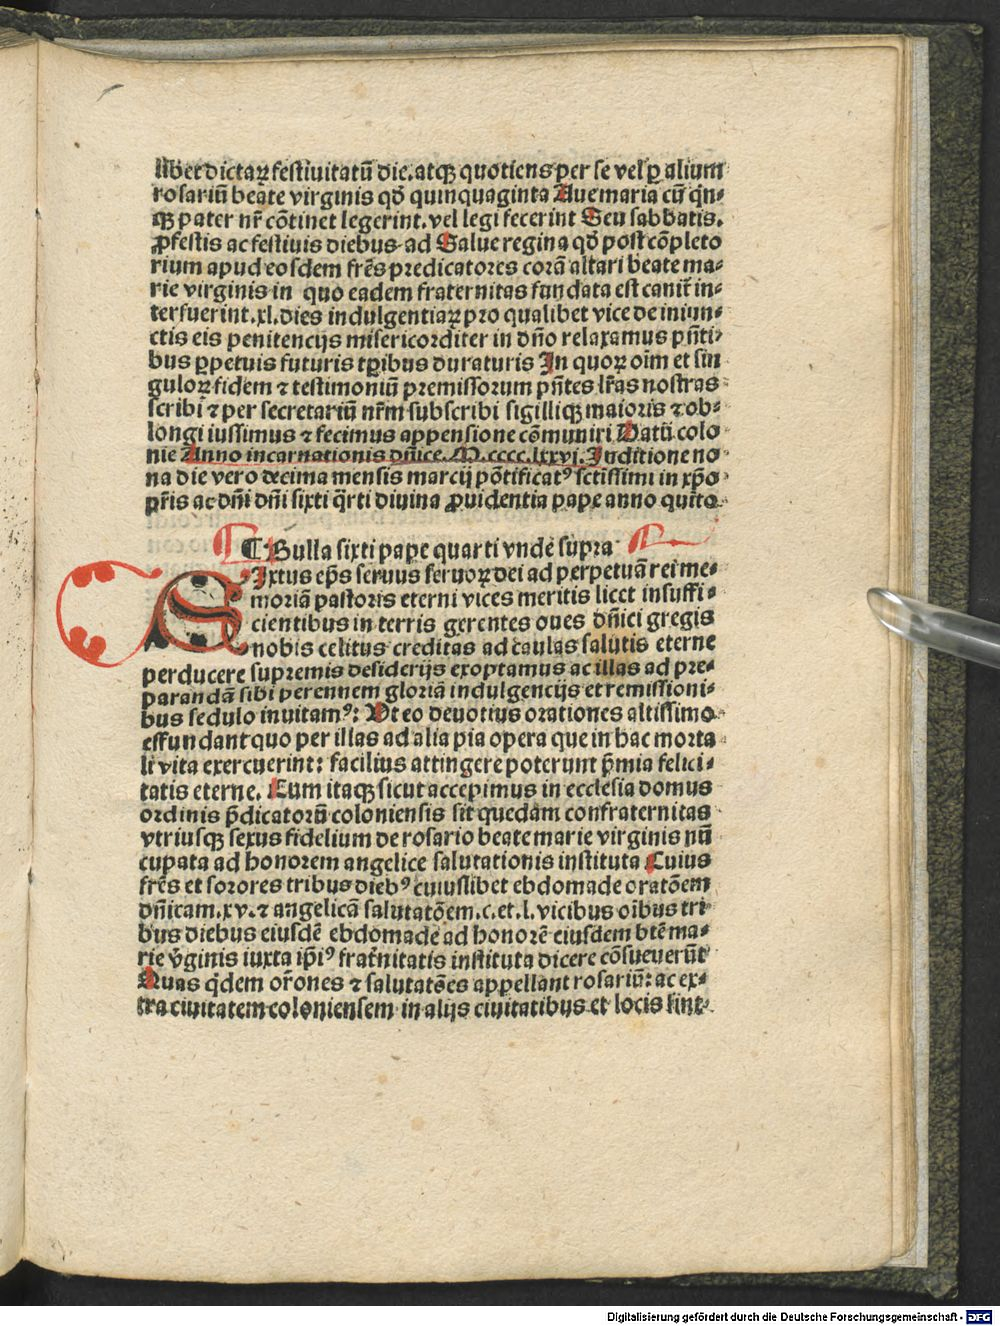 libet dictaꝝ festiuitatū die. atqꝫ quotiens per se vel ꝑ alium
rosariū beate virginis qđ quinquaginta Aue maria cū q̄n⸗
qꝫ pater nr̄ cōtinet legerint. vel legi fecerint Seu sabbatis.
ꝓfestis ac festiuis diebus ad Salue regina qđ post cōpleto
rium apud eosdem frēs predicatores corā altari beate ma⸗
rie virginis in quo eadem fraternitas fundata est canit̄ in⸗
terfuerint. xl. dies indulgentiaꝝ pro qualibet vice de iniun⸗
ctis eis penitencijs misericorditer in dño relaxamus pñti⸗
bus ꝑpetuis futuris tꝑibus duraturis In quoꝝ oīm et sin
guloꝝ fidem ⁊ testimoniū premissorum pñtes lr̄as nostras
scribi ⁊ per secretariū nr̄m subscribi sigilliqꝫ maioris ⁊ ob⸗
longi iussimus ⁊ fecimus appensione cōmuniri Datū colo
nie Anno incarnationis dñice. M. cccc. lxxvi. Inditione no
na die vero decima mensis marcij pōtificatꝰ sctissimi in xp̄o
pr̄is ac dñi dñi sixti q̄rti diuina ꝓuidentia pape anno quito
¶ Bulla sixti pape quarti vnde supra
SIxtus ep̄s seruus seruoꝝ dei ad perpetuā rei me⸗
moriā pastoris eterni vices meritis licet insuffi⸗
cientibus in terris gerentes oues dñici gregis
nobis celitus creditas ad caulas salutis eterne
perducere supremis desiderijs exoptamus ac illas ad pre⸗
parandā sibi perennem gloriā indulgencijs et remissioni⸗
bus sedulo inuitamꝰ: Vt eo deuotius orationes altissimo
effundant quo per illas ad alia pia opera que in hac morta
li vita exercuerint: facilius attingere poterunt p̄mia felici⸗
tatis eterne. Cum itaqꝫ sicut accepimus in ecclesia domus
ordinis p̄dicatorū coloniensis sit quedam confraternitas
vtriusqꝫ sexus fidelium de rosario beate marie virginis nū
cupata ad honorem angelice salutationis instituta Cuius
frēs et sorores tribus diebꝰ cuiuslibet ebdomade oratōem
dñicam. xv. ⁊ angelicā salutatōem. c. et. l. vicibus oībus tri
bus diebus eiusdē ebdomade ad honorē eiusdem btē ma⸗
rie v̄ginis iuxta ip̄iꝰ frat̄nitatis instituta dicere cōsueuerūt
Quas q̄dem or̄ones ⁊ salutatōes appellant rosariū: ac ex⸗
tra ciuitatem coloniensem in alijs ciuitatibus et locis sint
Digitalisierung gefördert durch die Deutsche Forschungsgemeinschaft - DFG